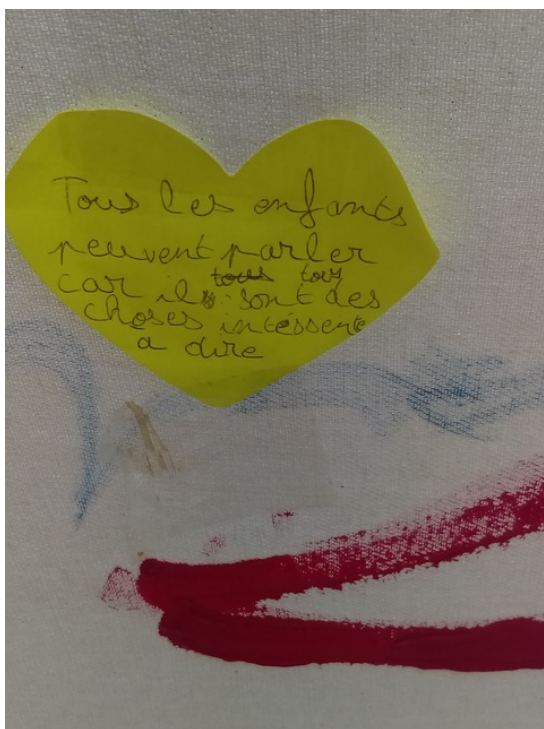 Tous les enfants
peuvent parler
tous tous
car ils sont des
choses intéssente
a dire